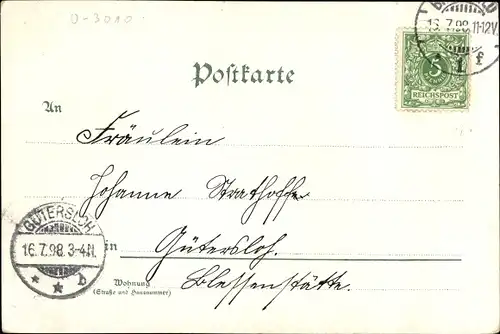 D-3010
16.7.98.11-12V.
f
5
REICHSPOST
Postkarte
An
Fräulein
Johanne Strathoffe
GÜTERSLOH
16.7.98.3-4N.
b
in Gütersloh.
Blessenstätte.
Wohnung
(Straße und Hausnummer)